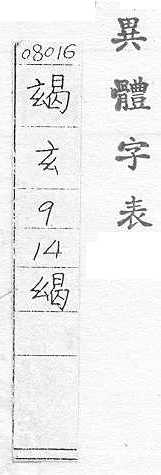 異體字表
08016
玄
9
14